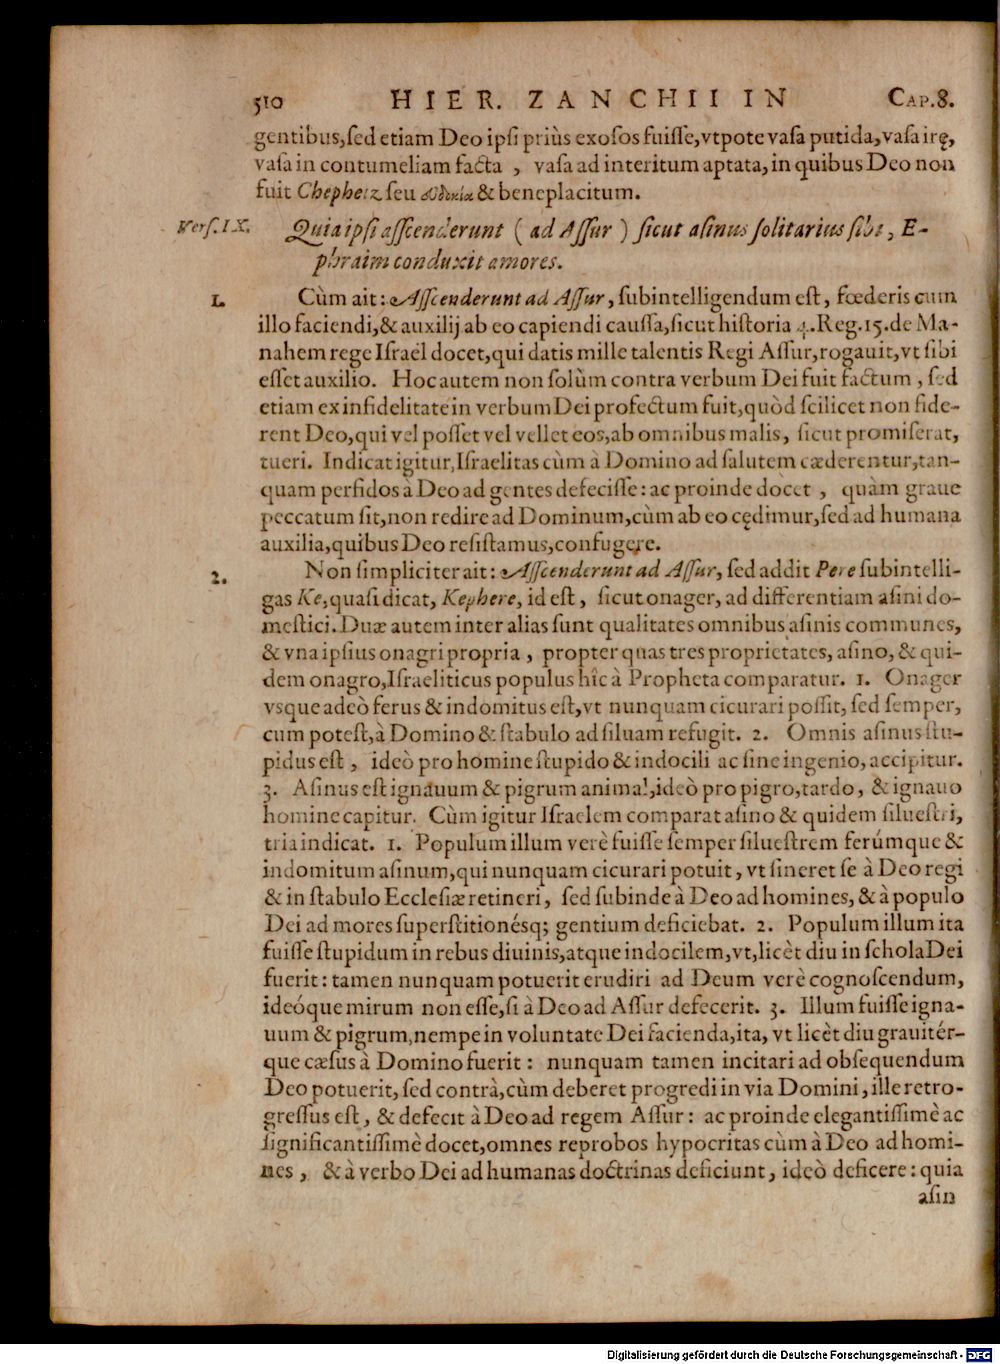 510 HIER. ZANCHII IN CAP.8.
gentibus, ſed etiam Deo ipſi priùs exoſos fuiſſe, vtpote vaſa putida, vaſa irę,
vaſa in contumeliam facta , vaſa ad interitum aptata, in quibus Deo non
fuit Chephetz ſeu & beneplacitum.
Verſ. IX. Quia ipſi aſſcenderunt ( ad Aſſur ) ſicut aſinus ſolitarius ſibi, E-
phraim conduxit amores.
1. Cùm ait: Aſſcenderunt ad Aſſur, ſubintelligendum eſt, fœderis cum
illo faciendi, & auxilij ab eo capiendi cauſſa, ſicut hiſtoria 4. Reg. 15. de Ma-
nahem rege Iſraël docet, qui datis mille talentis Regi Aſſur, rogauit, vt ſibi
eſſet auxilio. Hoc autem non ſolùm contra verbum Dei fuit factum, ſed
etiam ex infidelitate in verbum Dei profectum fuit, quòd ſcilicet non fide-
rent Deo, qui vel poſſet vel vellet eos, ab omnibus malis, ſicut promiſerat,
tueri. Indicat igitur, Iſraelitas cùm à Domino ad ſalutem cæderentur, tan-
quam perfidos à Deo ad gentes defeciſſe: ac proinde docet , quàm graue
peccatum ſit, non redire ad Dominum, cùm ab eo cędimur, ſed ad humana
auxilia, quibus Deo reſiſtamus, confugere.
2. Non ſimpliciter ait: Aſſcenderunt ad Aſſur, ſed addit Pere ſubintelli-
gas Ke, quaſi dicat, Kephere, id eſt , ſicut onager, ad differentiam aſini do-
meſtici. Duæ autem inter alias ſunt qualitates omnibus aſinis communes,
& vna ipſius onagri propria , propter quas tres proprietates, aſino, & qui-
dem onagro, Iſraëliticus populus hîc à Propheta comparatur. 1. Onager
vsque adeò ferus & indomitus eſt, vt nunquam cicurari poſſit, ſed ſemper,
cum poteſt, à Domino & ſtabulo ad ſiluam refugit. 2. Omnis aſinus ſtu-
pidus eſt , ideò pro homine ſtupido & indocili ac ſine ingenio, accipitur.
3. Aſinus eſt ignauum & pigrum animal, ideò pro pigro, tardo, & ignauo
homine capitur. Cùm igitur Iſraelem comparat aſino & quidem ſilueſtri,
tria indicat. 1. Populum illum verè fuiſſe ſemper ſilueſtrem ferúmque &
indomitum aſinum, qui nunquam cicurari potuit, vt ſineret ſe à Deo regi
& in ſtabulo Eccleſiæ retineri, ſed ſubinde à Deo ad homines, & à populo
Dei ad mores ſuperſtitionésq; gentium deficiebat. 2. Populum illum ita
fuiſſe ſtupidum in rebus diuinis, atque indocilem, vt, licèt diu in ſchola Dei
fuerit: tamen nunquam potuerit erudiri ad Deum verè cognoſcendum,
ideóque mirum non eſſe, ſi à Deo ad Aſſur defecerit. 3. Illum fuiſſe igna-
uum & pigrum, nempe in voluntate Dei facienda, ita, vt licèt diu grauitér-
que cæſus à Domino fuerit : nunquam tamen incitari ad obſequendum
Deo potuerit, ſed contrà, cùm deberet progredi in via Domini, ille retro-
greſſus eſt , & defecit à Deo ad regem Aſſur: ac proinde elegantiſſimè ac
ſignificantiſſimè docet, omnes reprobos hypocritas cùm à Deo ad homi-
nes , & à verbo Dei ad humanas doctrinas deficiunt, ideò deficere: quia
aſin
Digitalisierung gefördert durch die Deutsche Forschungsgemeinschaft - DFG